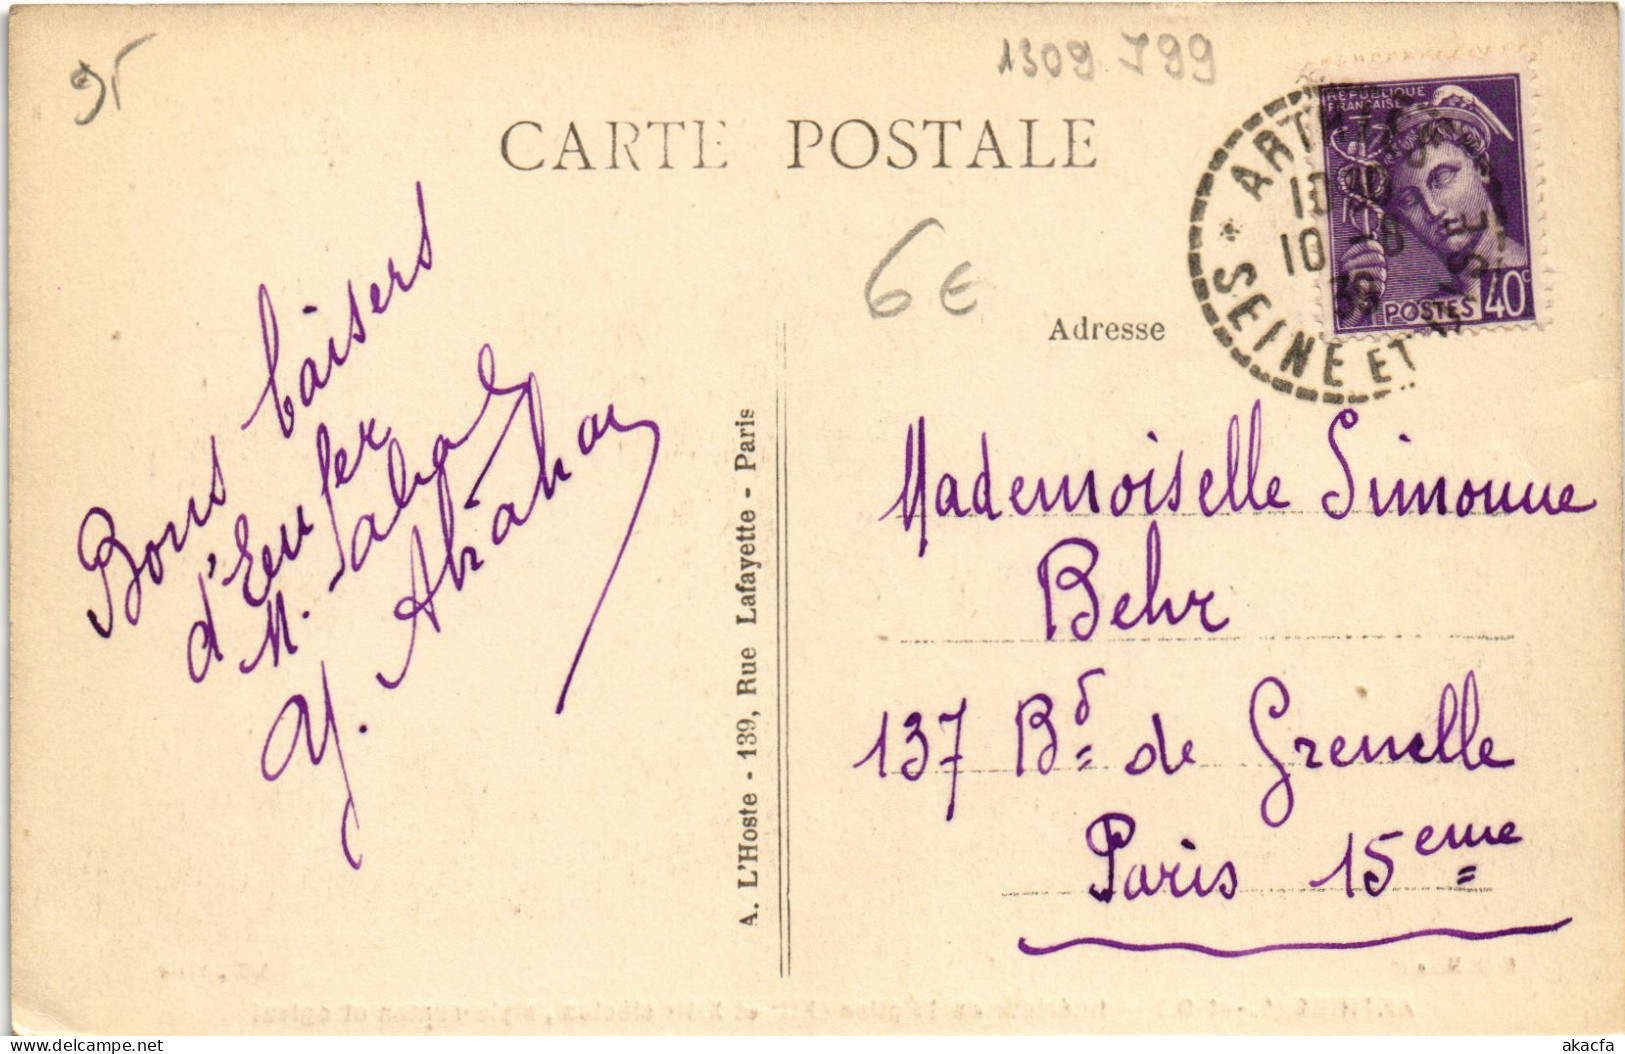 95
1309 J99
CARTE POSTALE
RÉPUBLIQUE
FRANÇAISE
POSTES 40c
10 30
10 - 8
39
SEINE ET OISE
6€
Adresse
Bons baisers
d'Eeufer
M.
Y. Abraham
A. L'Hoste - 139, Rue Lafayette - Paris
Mademoiselle Simonne
Behr
137 Bd de Grenelle
Paris 15eme
akacfa
delcampe.net